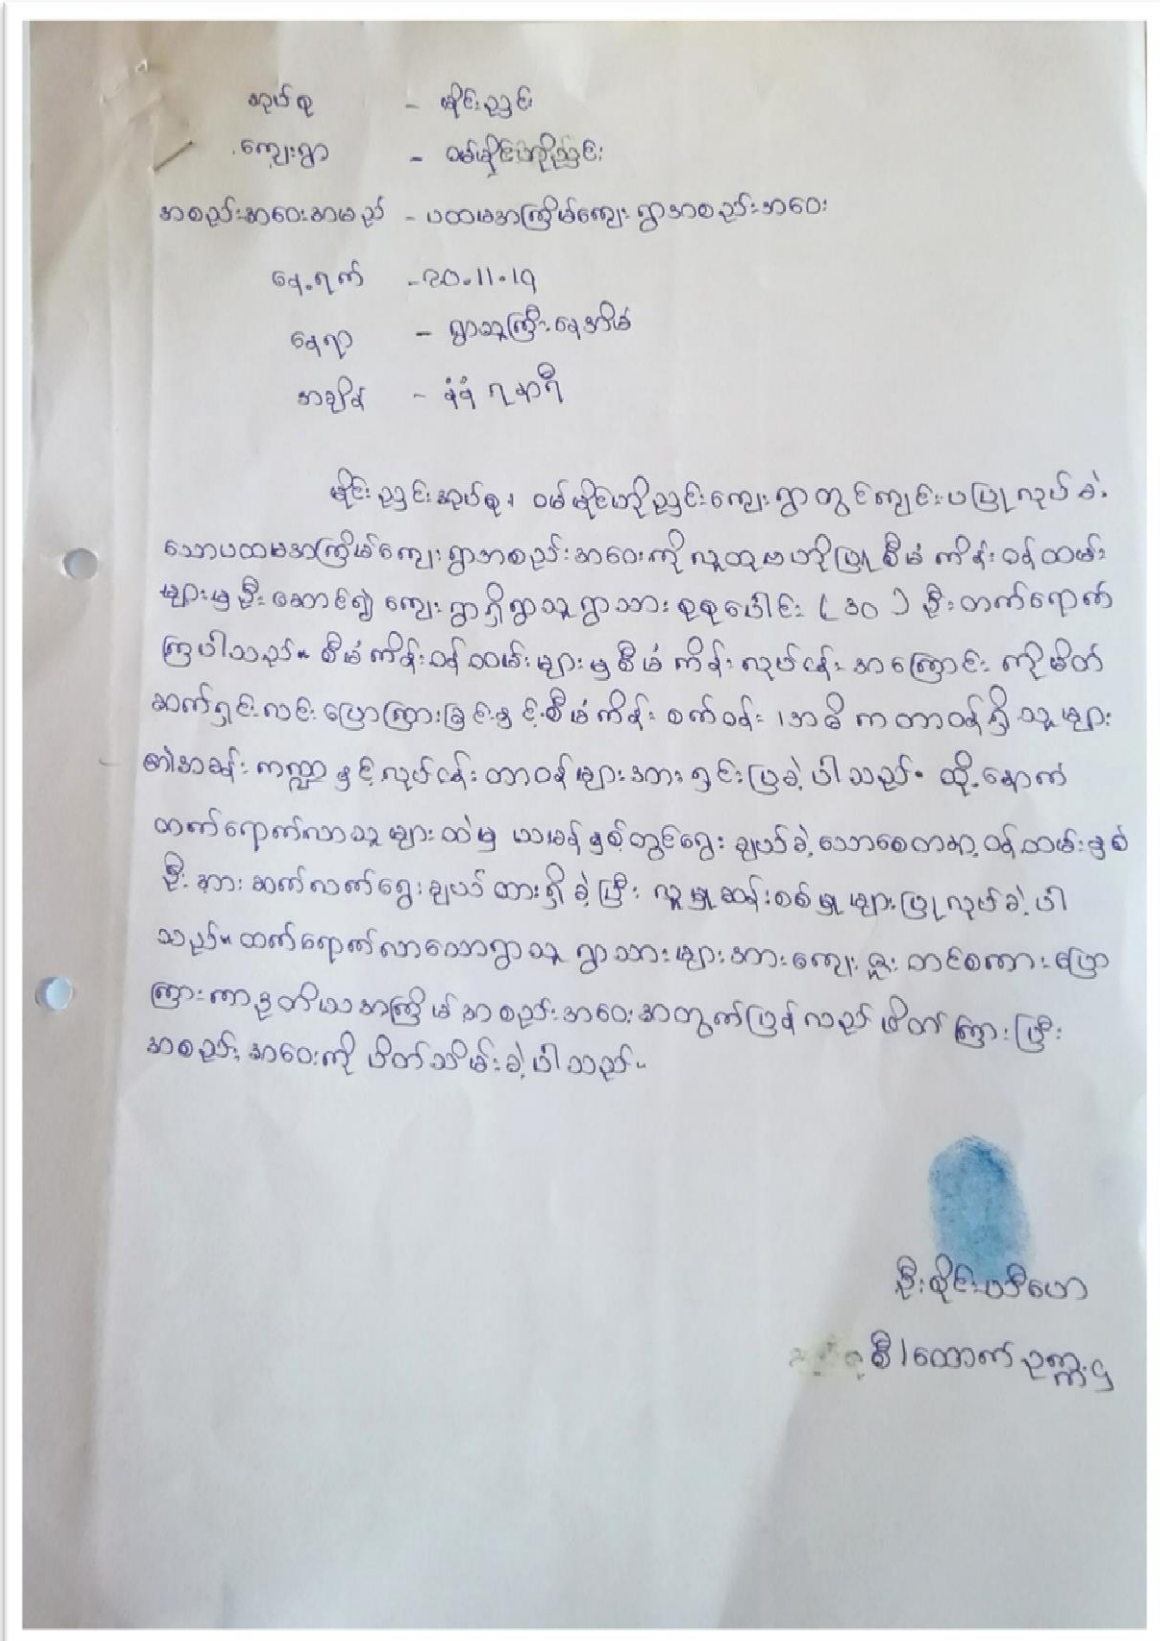 အုပ်စု - မိုင်းညှင်း
ကျေးရွာ - ဝမ်မိုင်းဟိုညှင်း
အစည်းအဝေးအမည် - ပထမအကြိမ်ကျေးရွာအစည်းအဝေး
နေ့ရက် - ၂၀.၁၁.၁၅
နေရာ - ရွာသူကြီးနေအိမ်
အချိန် - နံနံ ၇ နာရီ
မိုင်းညှင်းအုပ်စု၊ ဝမ်မိုင်းဟိုညှင်းကျေးရွာတွင်ကျင်းပပြုလုပ်ခဲ့
သောပထမအကြိမ်ကျေးရွာအစည်းအဝေးကိုလူထုဗဟိုပြုစီမံကိန်းဝန်ထမ်း
များမှဦးဆောင်၍ ကျေးရွာရှိရွာသူရွာသားစုစုပေါင်း (၁၀) ဦးတက်ရောက်
ကြပါသည်။ စီမံကိန်းဝန်ထမ်းများမှစီမံကိန်းလုပ်ငန်းအကြောင်းကိုမိတ်
ဆက်ရှင်းလင်းပြောကြားခြင်းနှင့်စီမံကိန်းစက်ဝန်း၊အဓိကတာဝန်ရှိသူများ
၏အခန်းကဏ္ဍနှင့်လုပ်ငန်းတာဝန်များအားရှင်းပြခဲ့ပါသည်။ ထို့နောက်
တက်ရောက်လာသူများထဲမှ ယမန်နှစ်တွင်ရွေးချယ်ခဲ့သောစေတနာ့ဝန်ထမ်းနှစ်
ဦးအားဆက်လက်ရွေးချယ်ထားရှိခဲ့ပြီး လူမှုဆန်းစစ်မှုများပြုလုပ်ခဲ့ပါ
သည်။ တက်ရောက်လာသောရွာသူရွာသားများအားကျေးဇူးတင်စကားပြော
ကြားကာဒုတိယအကြိမ်အစည်းအဝေးအတွက်ပြန်လည်ဖိတ်ကြားပြီး
အစည်းအဝေးကိုပိတ်သိမ်းခဲ့ပါသည်။
ဦးစိုင်း
စီ/ထောက်ဥက္ကဌ